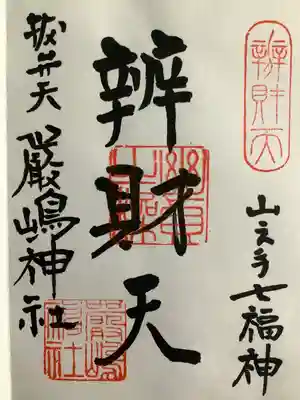 辨財天
山之手七福神
辨財天
抜弁天 厳嶋神社
厳嶋神社